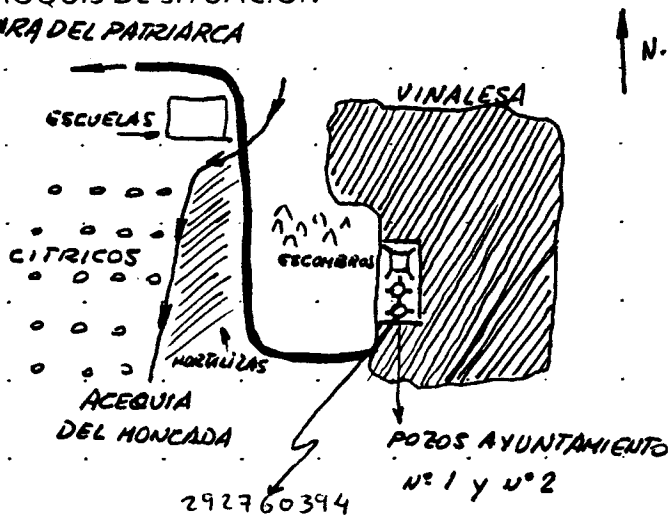 CROQUIS DE SITUACION
ARA DEL PATRIARCA
N.
VINALESA
ESCUELAS
CITRICOS
ESCOMBROS
HORTALIZAS
ACEQUIA
DEL MONCADA
POZOS AYUNTAMIENTO
Nº 1 y Nº 2
292760394